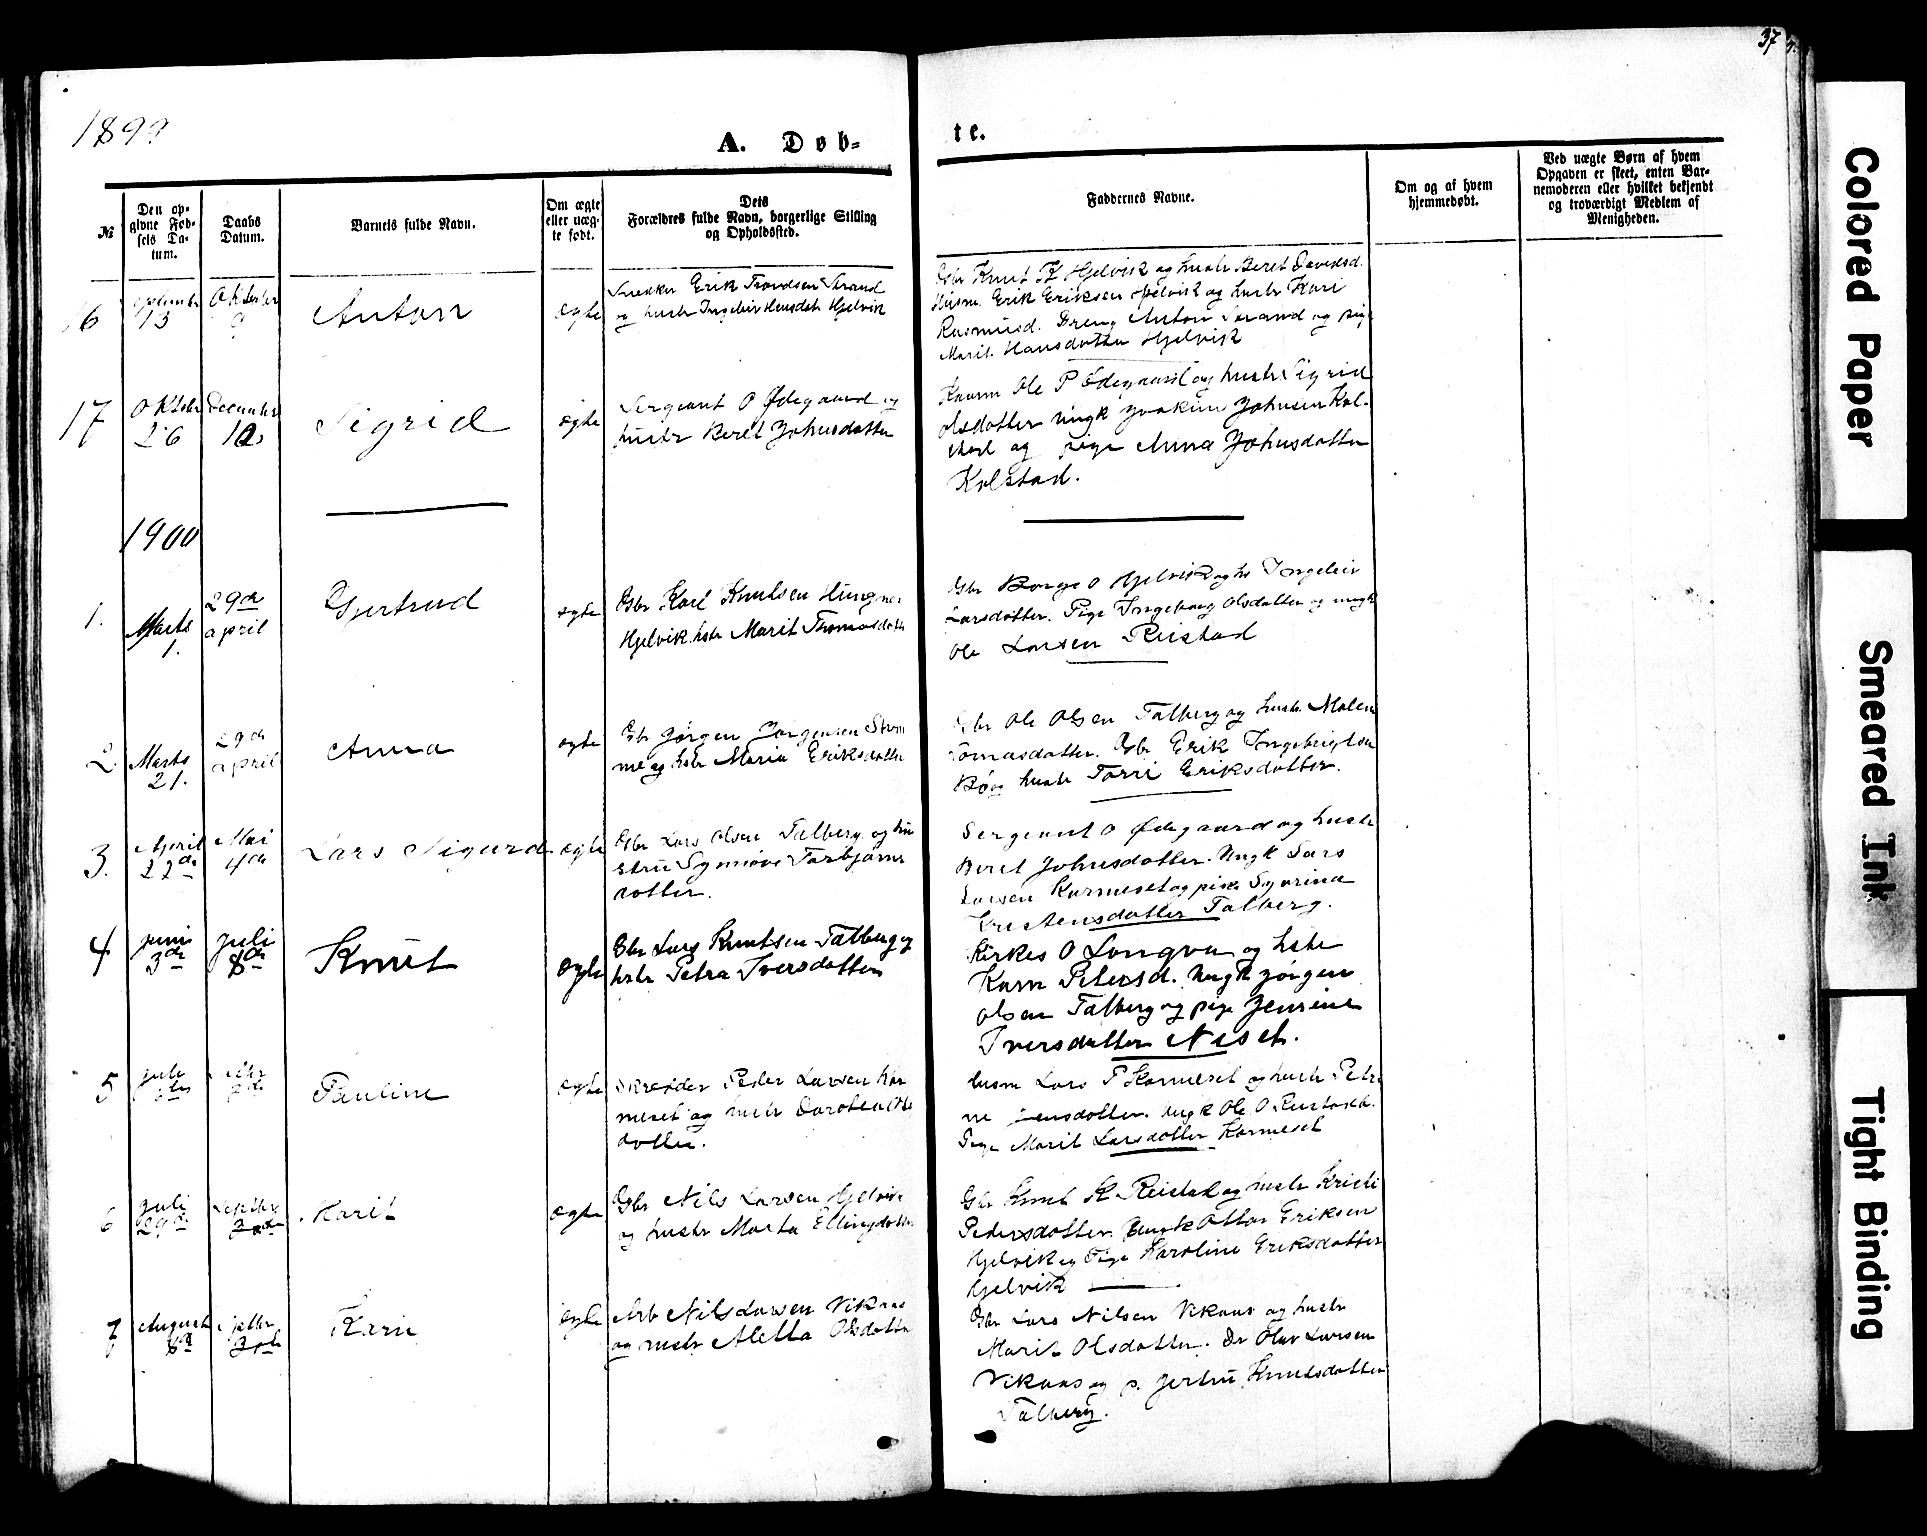 37
1899
A. Døb-
te.
№
Den op-
givne Fød-
sels Da-
tum.
Daabs
Datum.
Barnets fulde Navn.
Om ægte
eller uæg-
te født.
Dets
Forældres fulde Navn, borgerlige Stilling
og Opholdssted.
Faddernes Navne.
Om og af hvem
hjemmedøbt.
Ved uægte Børn af hvem
Opgaven er skeet, enten Bar-
nemoderen eller hvilket bekjendt
og troværdigt Medlem af
Menigheden.
16
September
13
Oktober
Anton
ægte
Snekker Erik Trondsen Strand
og hustr Ingeleiv Hansdatt Hjelvik
Gbr Knut K Hjelvik og hustr Beret Davidsd.
Husm. Erik Eriksen Hjelvik og hustr Kari
Rasmusd. Dreng Anton Strand og pige
Marit Hansdatter Hjelvik
17
Oktober
26
December
10
Sigrid
ægte
Sergeant O Ødegaard og
hustr Beret Johnsdatter
Kaarm Ole P Ødegaard og hustr Sigrid
Olsdatter Ungk Joakim Johnsen Kol-
stad og pige Anna Johnsdatter
Kolstad.
1900
1.
Marts
1.
29de
april
Gjertrud
ægte
Gbr Karl Knutsen Hungnes
Hjelvik hstr Marit Thomasdatt
Gbr Børge O Hjelvik og hs Ingeleiv
Larsdatter. Pige Ingeborg Olsdatter og ungk
Ole Larsen Reistad
2
Marts
21.
29de
april
Anna
ægte
Gbr Jørgen Jørgensen Strøm
me og hstr Maria Eriksdatter
Gbr Ole Olsen Talberg og hustr. Malen
Tomasdatter. Gbr Erik Ingebrigtsen
Bø og hustr Torri Eriksdatter.
3.
April
22de
Mai
4de
Lars Sigurd
ægte
Gbr Lars Olsen Talberg og hu
stru Synnøve Torbjørns
dotter.
Sergeant O Ødegaard og hustr
Beret Johnsdatter. Ungk Lars
Larsen Karmeset og pige Syvrina
Kristensdatter Talberg.
4
juni
3de
juli
8de
Knut
ægte
Gbr Lars Knutsen Talberg og
hstr Petra Iversdatter
Kirkes O Longva og hstr
Karn Petersd. Ungk Jørgen
Olsen Talberg og pige Jensine
Iversdatter Neset.
5
juli
Pauline
ægte
Skrædder Peder Larsen Kar
meset og hustr Dorothea Ols
dotter.
Husm Lars P Karmeset og hustr Petri
ne Jensdotter. Ungk Ole O Reistad.
Pige Marit Larsdotter Karmeset
6
juli
29de
Septbr
2de
Marit
ægte
Gbr Nils Larsen Hjelvik
og hustr Marta Ellingdatter
Gbr Knut K Reistad og hustr Kristi
Pedersdotter. Ungk Ottar Eriksen
Hjelvik og Pige Karoline Eriksdotter
Hjelvik
7
August
Septbr
2de
Kari
ægte
Arb Nils Larsen Vikaas
og hustr Aletta Olsdatter
Gbr Lars Nilsen Vikaas og hustr
Marit Olsdatter. Dr Olav Larsen
Vikaas og p. Jertru Knutsdatter
Talberg.
Colored Paper
Smeared Ink
Tight Binding